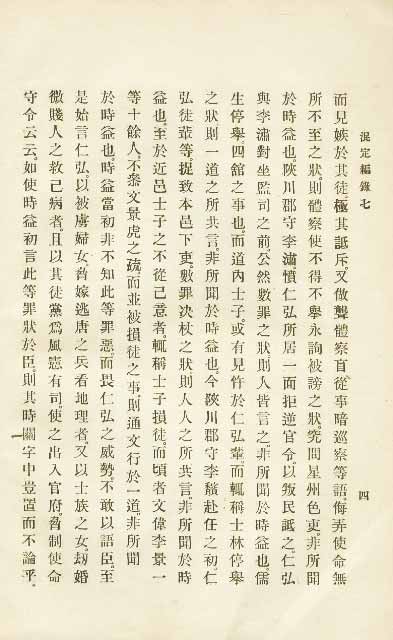 混定編錄七
四
而見嫉於其徒極其詆斥又做聾體察盲從事暗巡察等語侮弄使命無
所不至之狀則體察使不得不擧永詢被謗之狀究問星州色吏非所聞
於時益也陜川郡守李潚憤仁弘所居一面拒逆官令以叛民詆之仁弘
與李潚對坐監司之前公然數罪之狀則人皆言之非所聞於時益也儒
生停擧四館之事也而道內士子或有見忤於仁弘輩而輒稱士林停擧
之狀則一道之所共言非所聞於時益也今陜川郡守李 赴任之初仁
弘徒輩等捉致本邑下吏數罪決杖之狀則人人之所共言非所聞於時
益也至於近邑士子之不從己意者輒稱士子損徒而頃者文偉李景一
等十餘人不參文景虎之疏而並被損徒之事則通文行於一道非所聞
於時益也時益當初非不知此等罪惡而畏仁弘之威勢不敢以語臣至
是始言仁弘以被虜婦女脅嫁逃唐之兵看地理者又以士族之女劫婚
微賤人之救己病者且以其徒黨爲風憲有司使之出入官府脅制使命
守令云云如使時益初言此等罪狀於臣則其時關字中豈置而不論乎